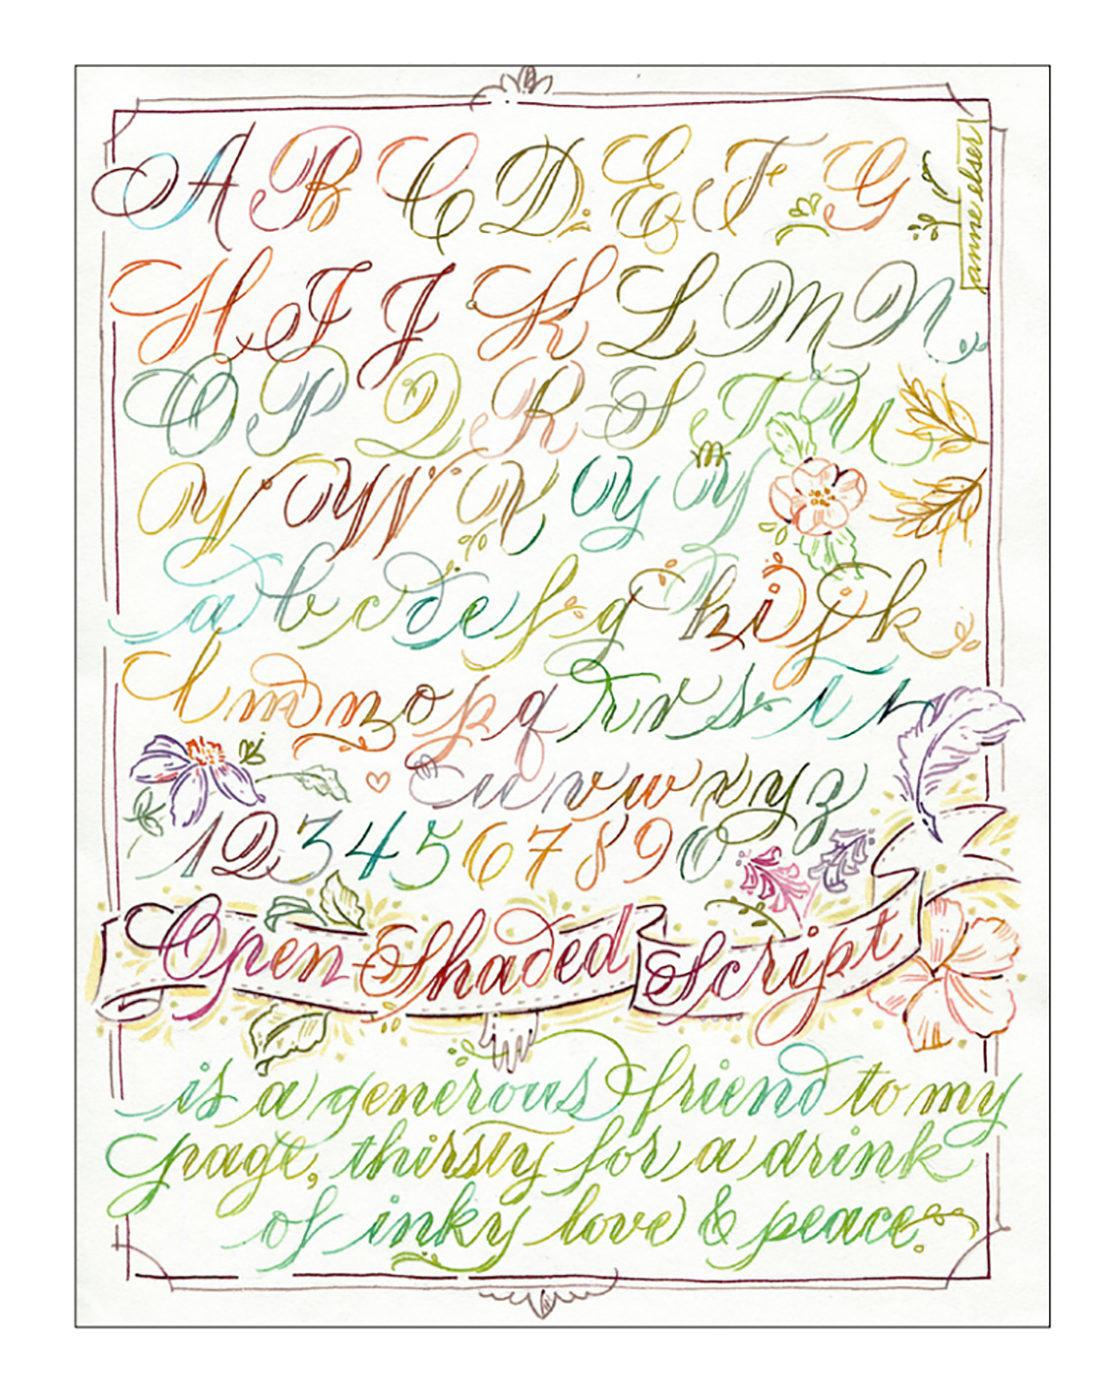 A B C D E F G
anne elser
H I J K L M N
O P Q R S T U
V W X Y
a b c d e f g h i j k
l m n o p q r r s t
u v w x y z
1 2 3 4 5 6 7 8 9 0
Open Shaded Script
is a generous friend to my
page, thirsty for a drink
of inky love & peace.